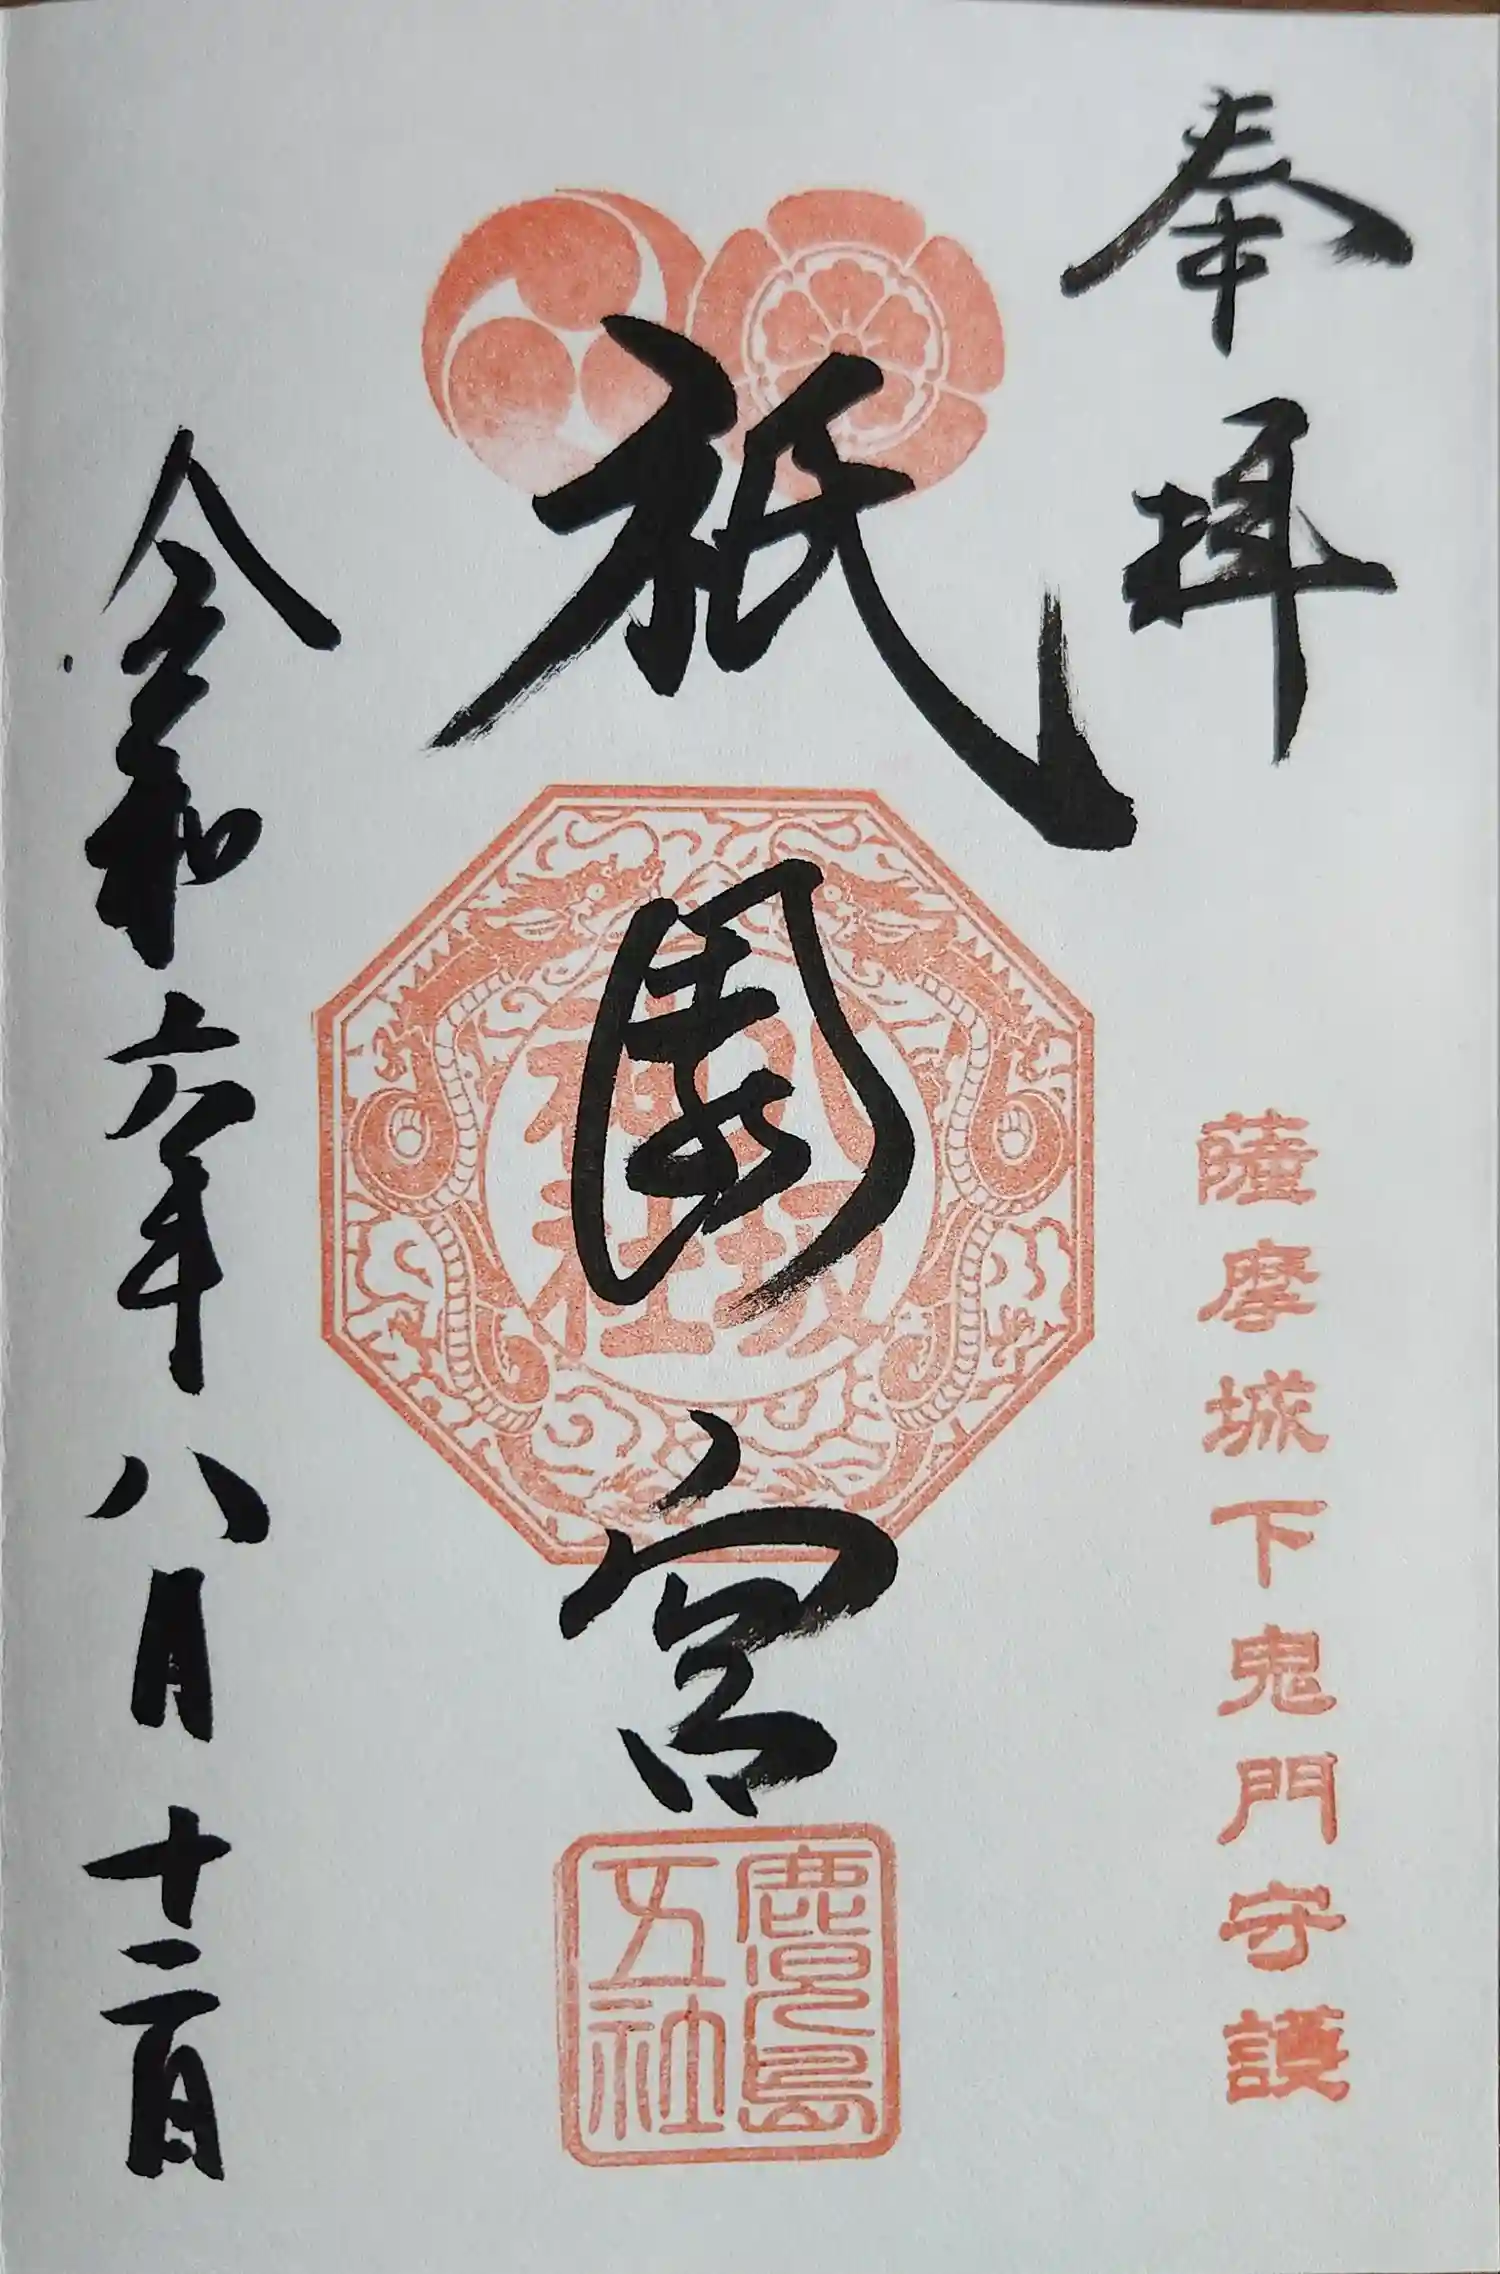 奉拝
薩摩城下鬼門守護
祇園宮
八坂
神社
鹿児島
五社
令和六年八月十二日